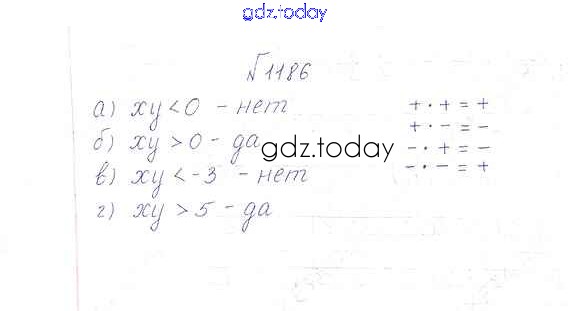 gdz.today
№1186
а) xy < 0 - нет
б) xy > 0 - да
в) xy < -3 - нет
г) xy > 5 - да
+ · + = +
+ · - = -
- · + = -
- · - = +
gdz.today